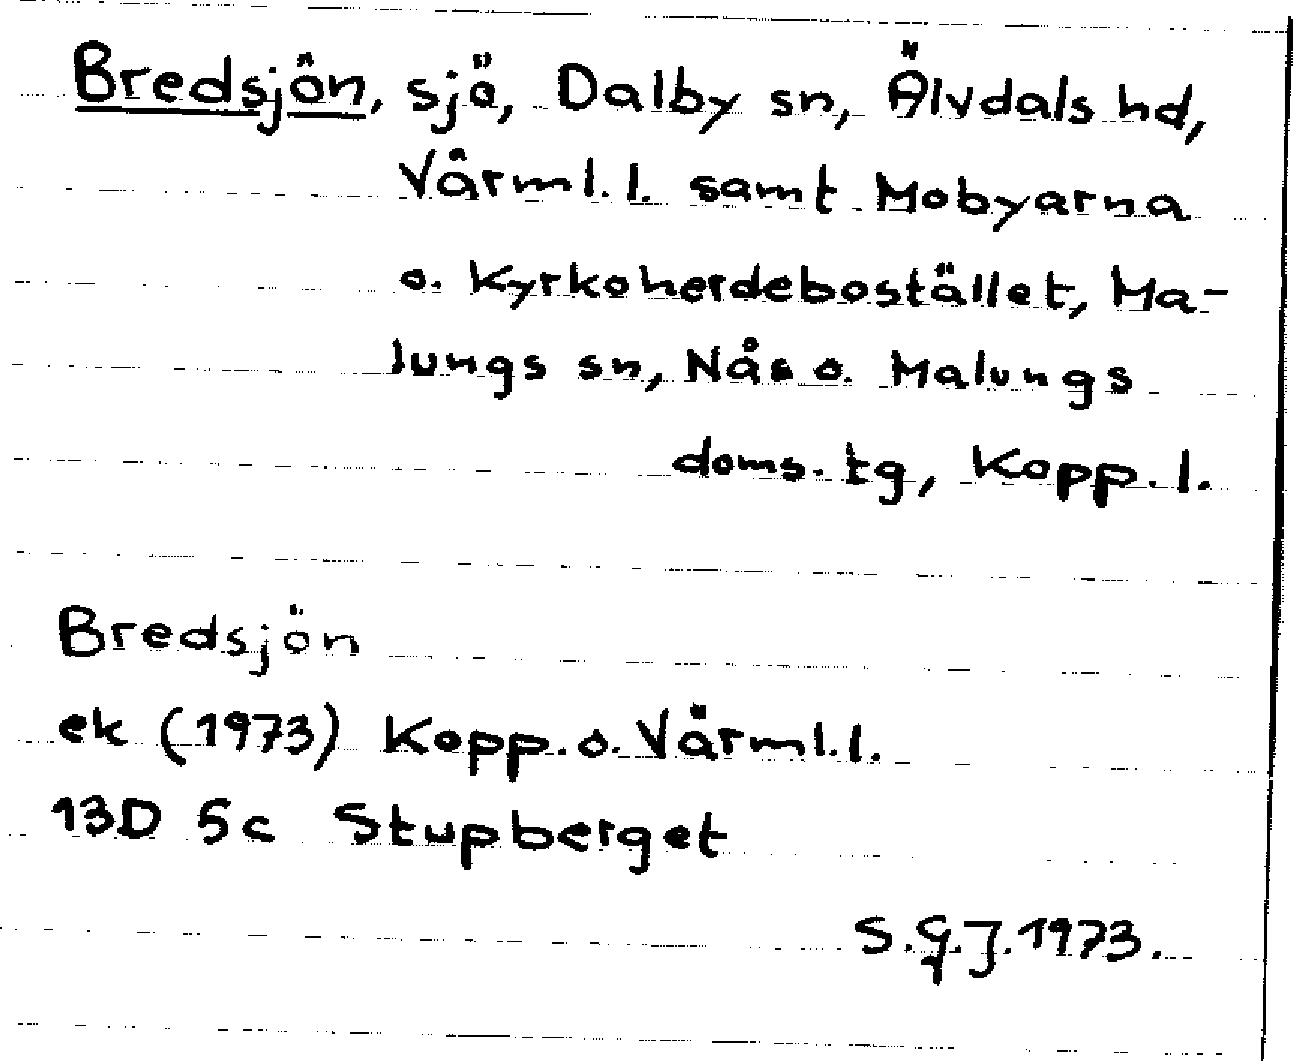 Bredsjön, sjö, Dalby sn, Älvdals hd,
Värml. l. samt Mobyarna
o. Kyrkoherdebostället, Ma-
lungs sn, Nås o. Malungs
doms. tg, Kopp. l.
Bredsjön
ek (1973) Kopp. o. Värml. l.
13D 5c Stupberget
S.G.J. 1973.